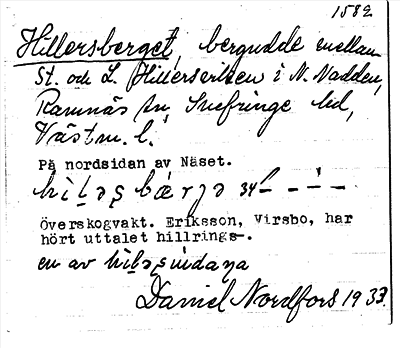 1582
Hillersberget, bergudde mellan
St. och L. Hillersviken i N. Nadden,
Ramnäs sn, Snefringe hd,
Västm. l.
På nordsidan av Näset.
34
Överskogvakt. Eriksson, Virsbo, har
hört uttalet hillrings-.
en av
Daniel Nordfors 1933.